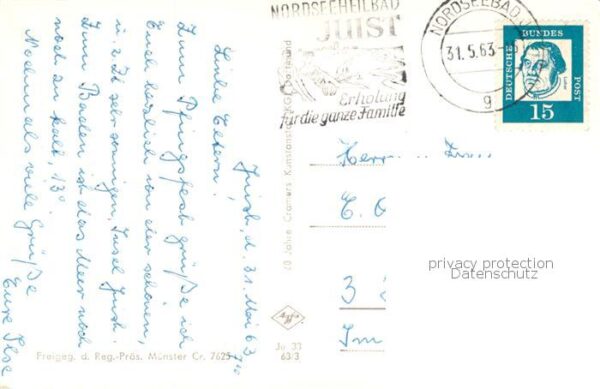 NORDSEEHEILBAD
JUIST
Erholung
für die ganze Familie
NORDSEEBAD J
31.5.63
g
DEUTSCHE BUNDESPOST
15
Juist, d. 31. Mai 63.
Liebe Eltern!
Zum Pfingstfest grüße ich
Euch herzlich von der schönen,
z. Zt. sehr sonnigen Insel Juist.
Zum Baden ist das Meer noch
noch zu kalt, 13°.
Nochmals viele Grüße
Eure Ilse
60 Jahre Cramers Kunstanstalt KG, Dortmund
Agfa
Ju 33
63/3
Freigeg. d. Reg.-Präs. Münster Cr. 7625
Herrn
3
Im
privacy protection
Datenschutz